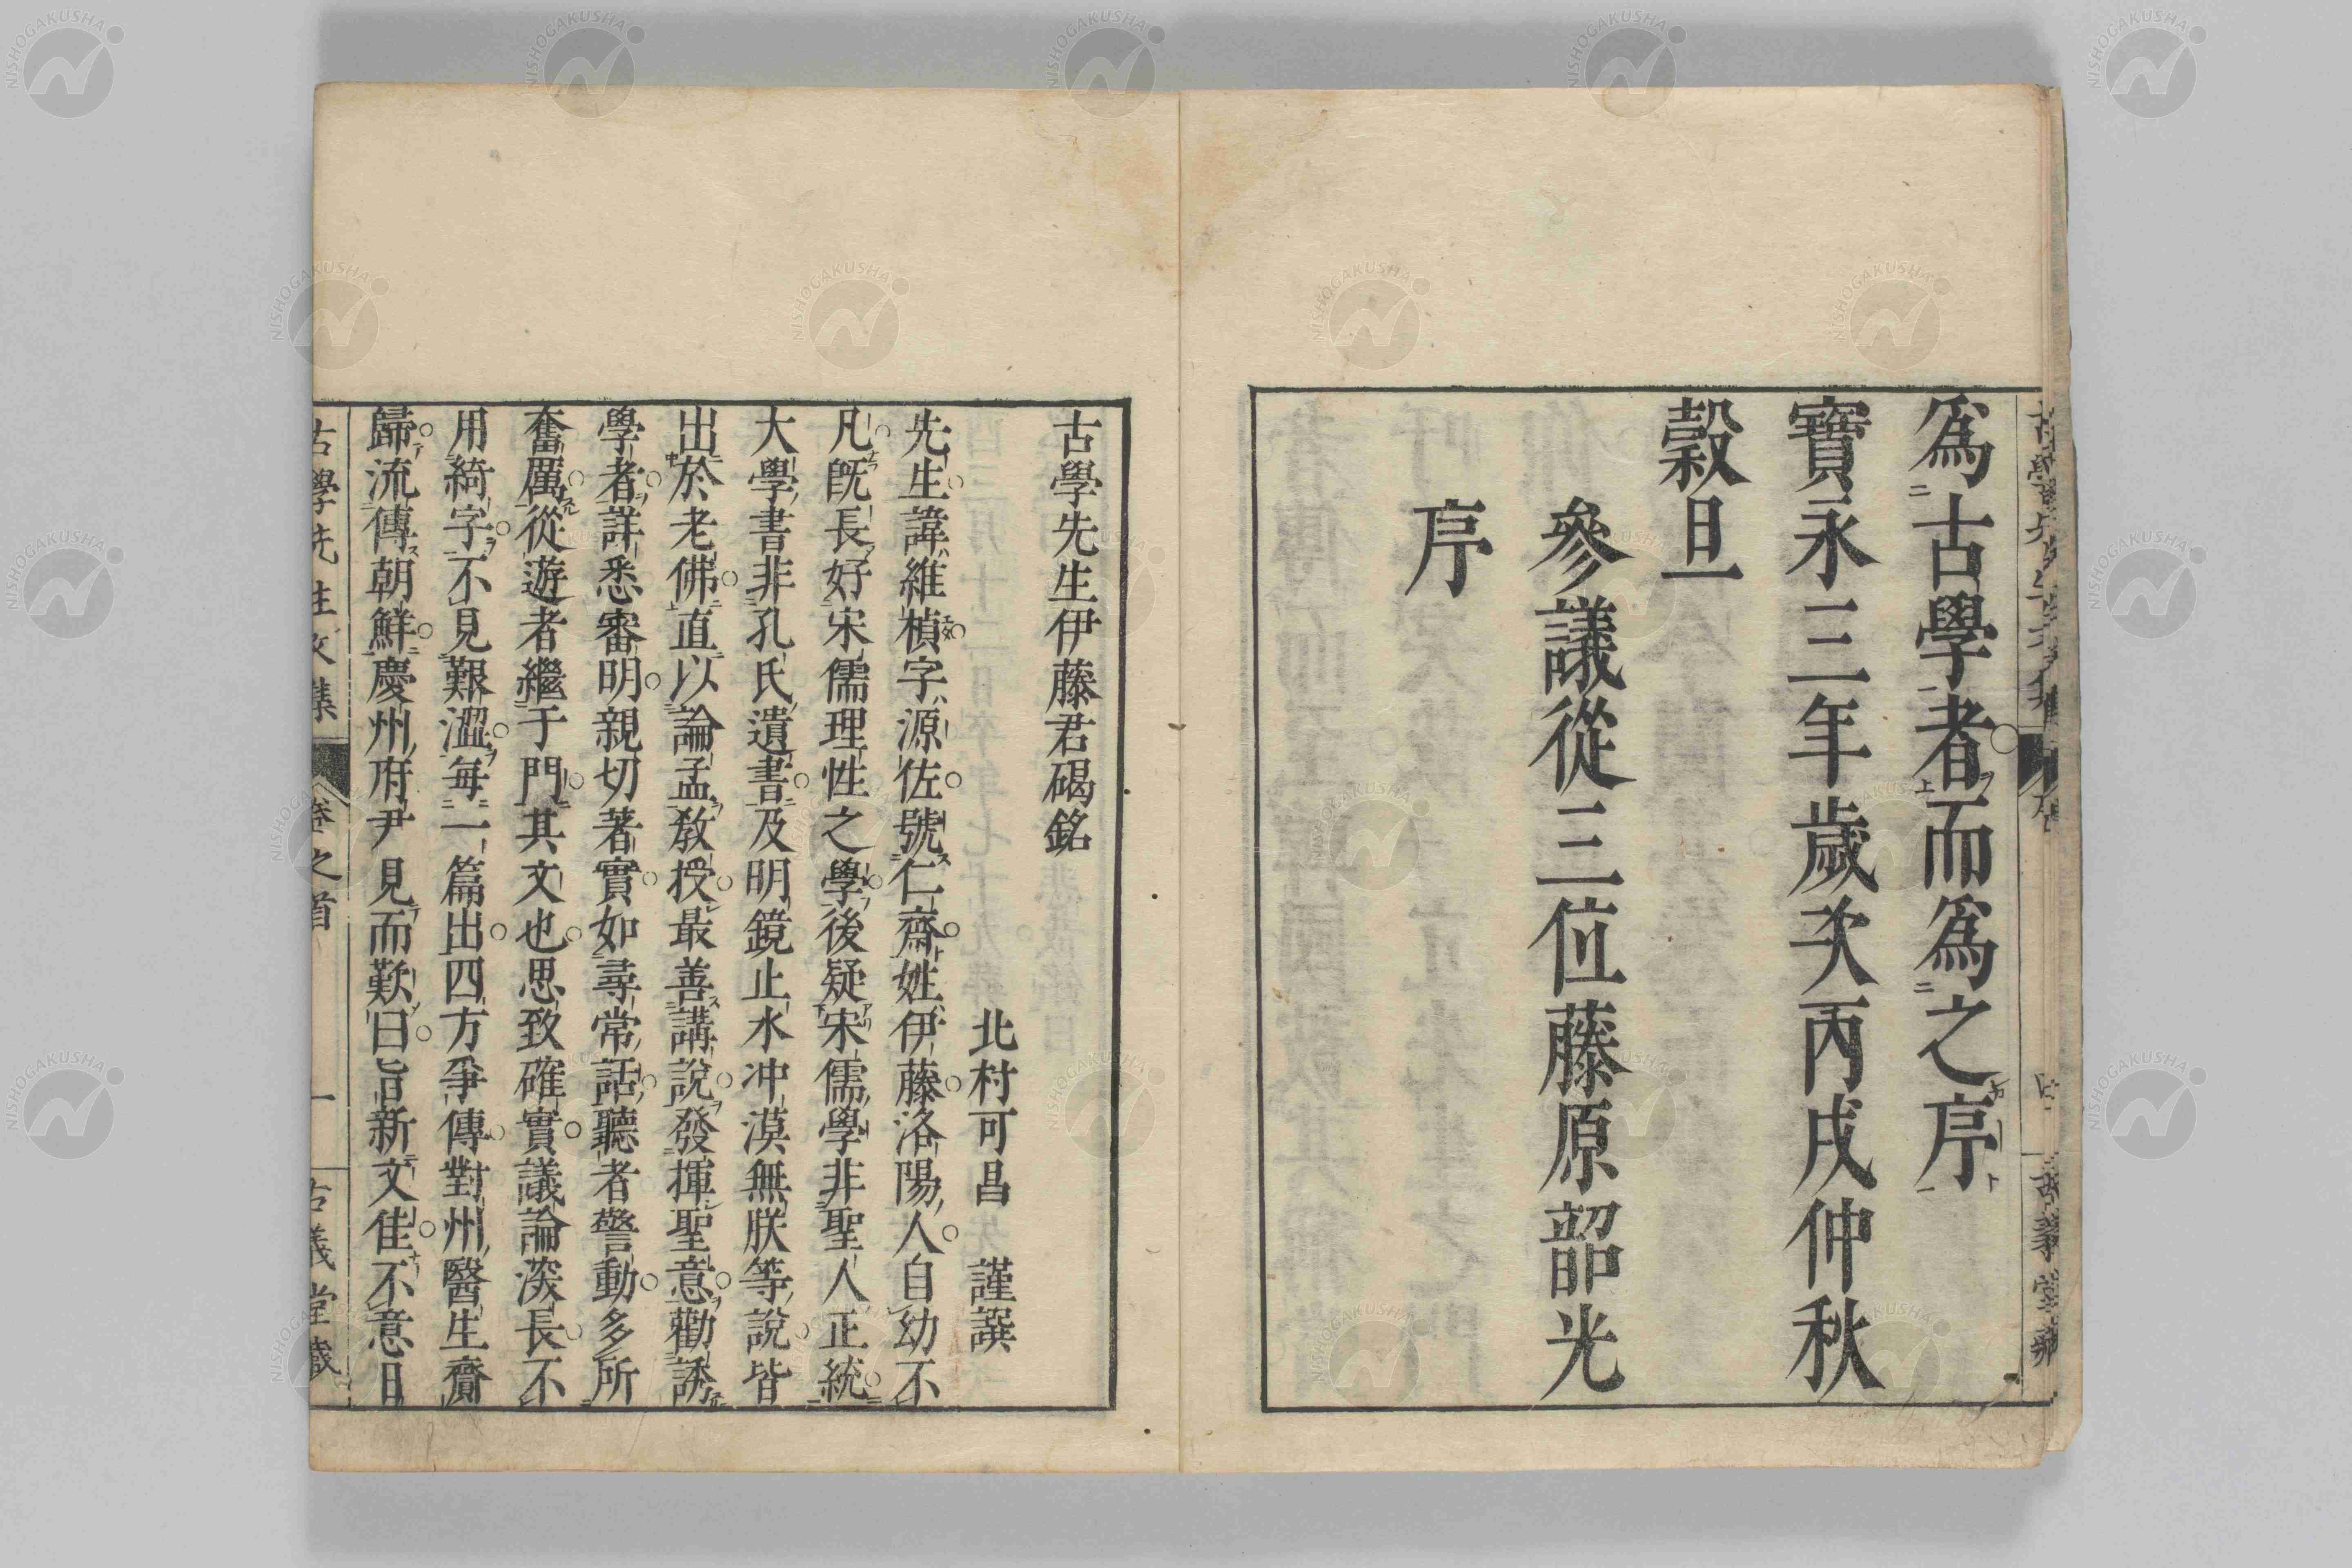 爲古學者而爲之序
寶永三年歲次丙戌仲秋
穀旦
參議從三位藤原韶光
序
古學先生伊藤君碣銘
北村可昌　謹譔
先生諱維楨字源佐號仁齋姓伊藤洛陽人自幼不
凡既長好宋儒理性之學後疑宋儒學非聖人正統
大學書非孔氏遺書及明鏡止水冲漠無朕等說皆
出於老佛直以論孟敎授最善講說發揮聖意勸誘
學者詳悉審明親切著實如尋常話聽者警動多所
奮厲從遊者繼于門其文也思致確實議論深長不
用綺字不見艱澀每一篇出四方爭傳對州醫生齎
歸流傳朝鮮慶州府尹見而歎曰旨新文佳不意日
古學先生文集　卷之首　一　古義堂藏
NISHOGAKUSHA